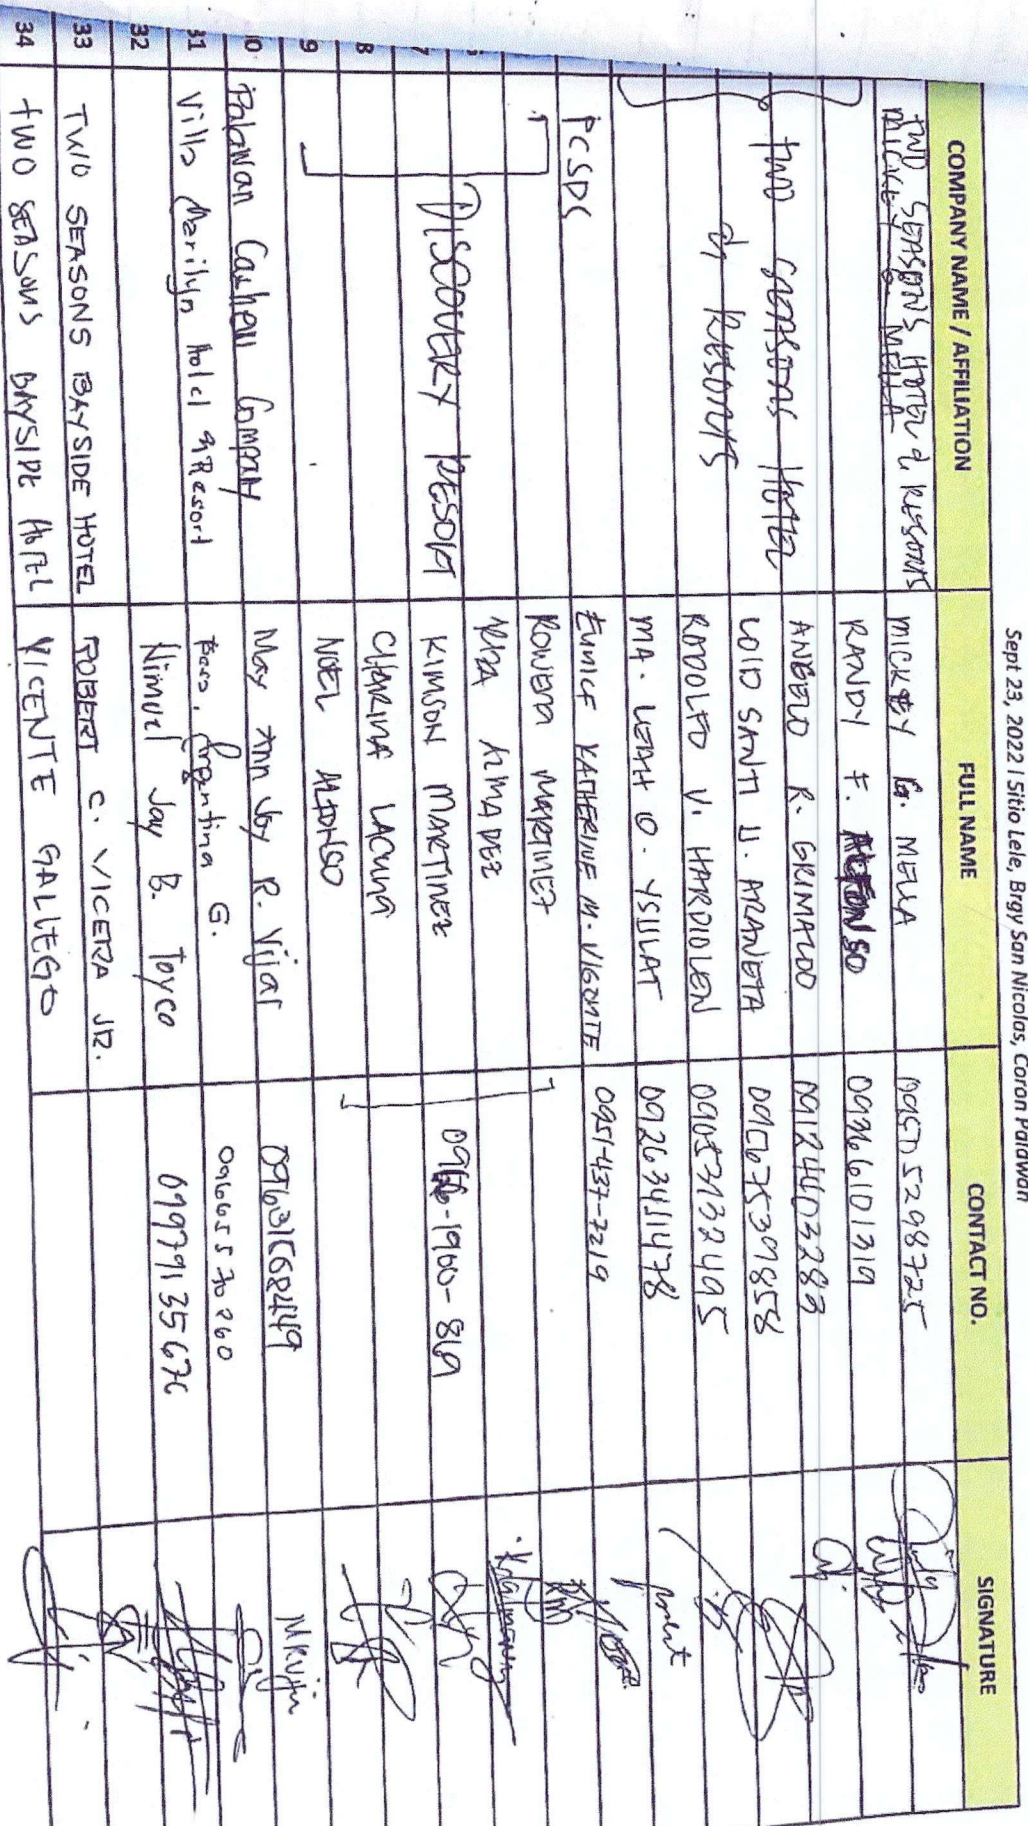 Sept 23, 2022 I Sitio Lele, Brgy San Nicolas, Coron Palawan
COMPANY NAME / AFFILIATION FULL NAME CONTACT NO. SIGNATURE
TWO SEASONS HOTEL & RESORTS MICKEY G. MELLA 09505298725
MICKEY G. MELLA
RANDY F. ALFONSO 09366101319
ANGELO R. GRIMALDO 09124603283
TWO SEASONS HOTEL LOID SANTI U. ARANETA 09567539858
& RESORTS RODOLFO V. HARDIOLEN 09053132495
MA. LEAH O. YSULAT 09263411478
PCSDS EUNICE KATHERINE M. VIGONTE 0951-437-7219
ROWENA MARTINEZ
KIMSON MARTINEZ
DISCOVERY RESORT 0966-1900-819
CHARINA LACUNA
8
9 NOEL ALFONSO
Palawan Cashew Company May Ann Joy R. Vijar 09631568449
31 Villa Marilyn Hotel & Resort Argentina G. 09665570260
32 Nimuel Jay B. Toyco 09979135676
33 TWO SEASONS BAYSIDE HOTEL ROBERT C. VICERA JR.
34 TWO SEASONS BAYSIDE HOTEL VICENTE GALLEGO